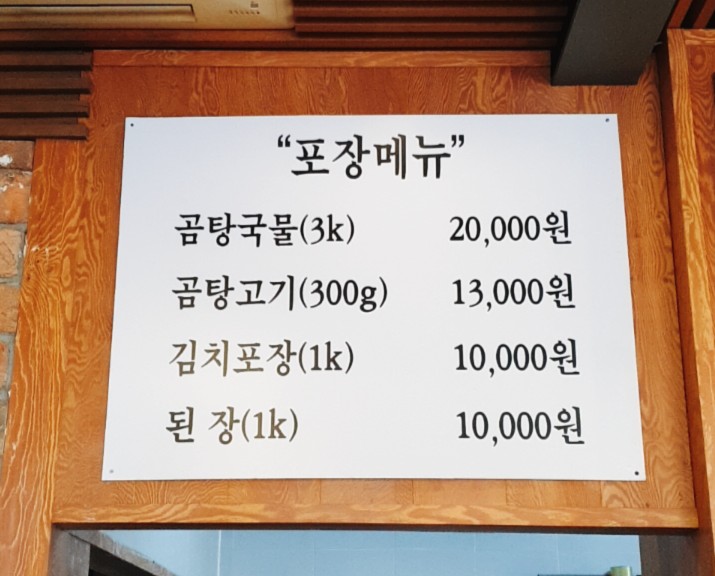 “포장메뉴”
곰탕국물(3k) 20,000원
곰탕고기(300g) 13,000원
김치포장(1k) 10,000원
된 장(1k) 10,000원